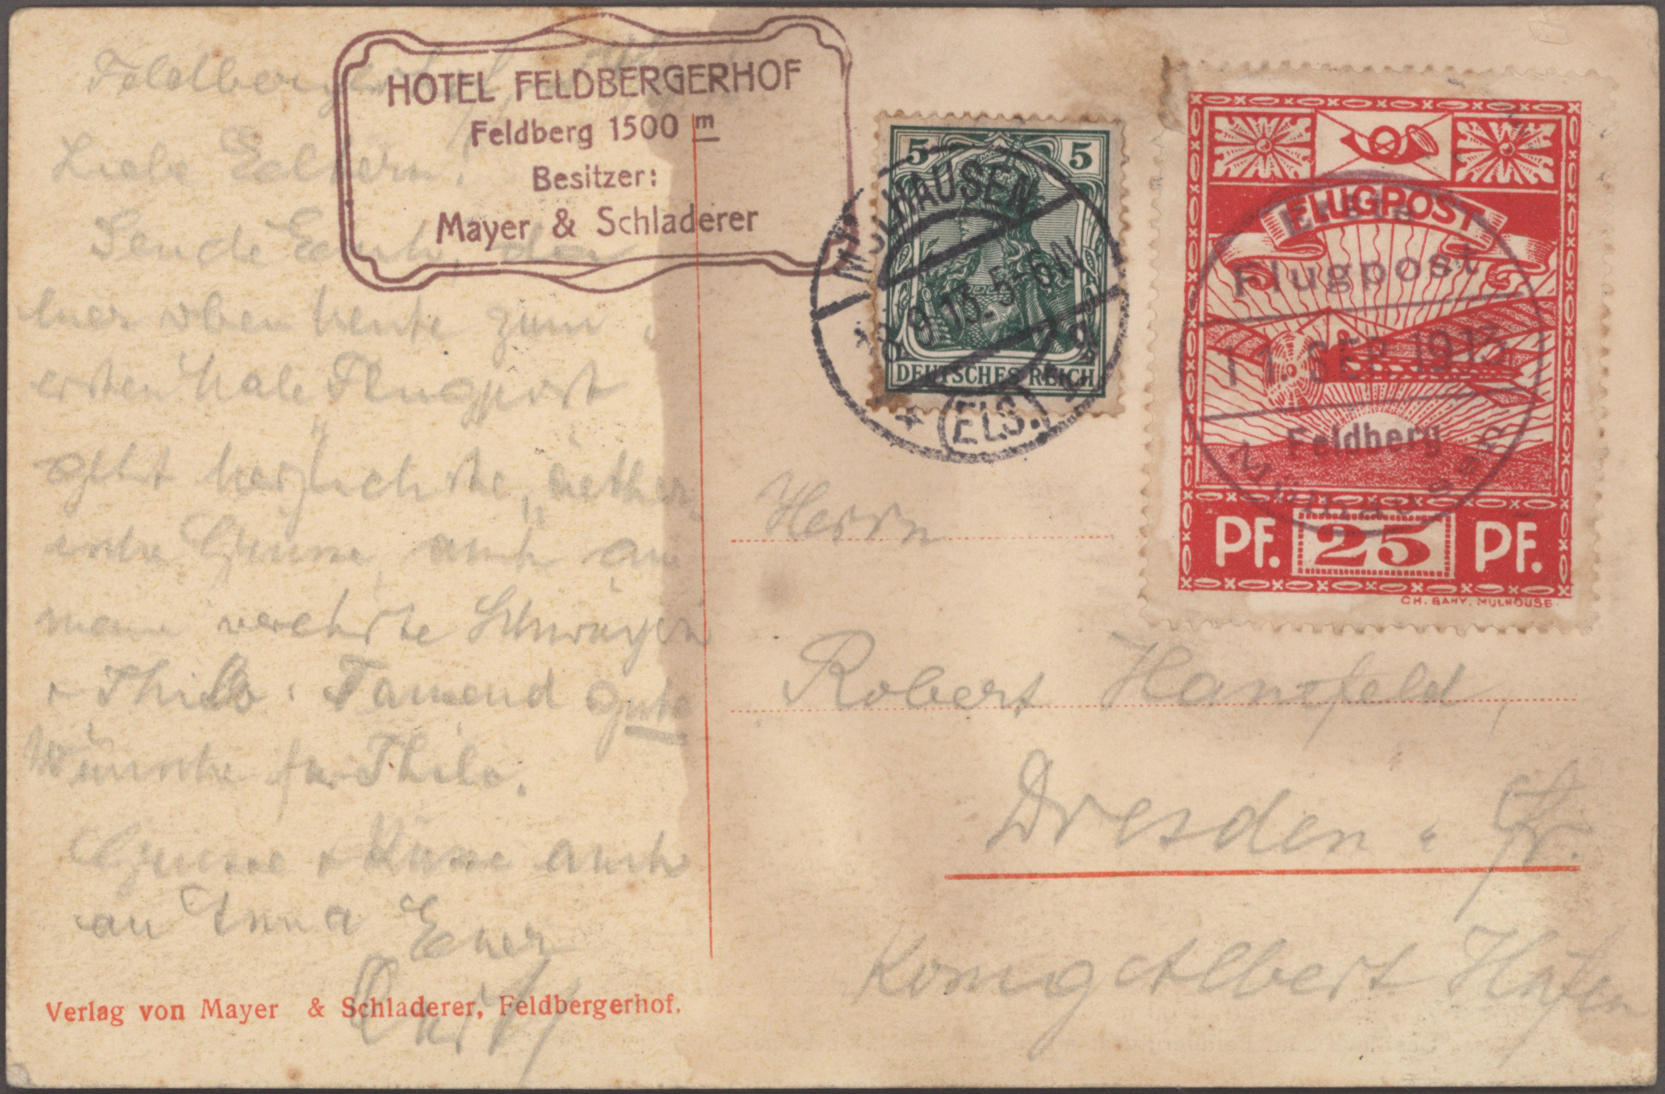 HOTEL FELDBERGERHOF
Feldberg 1500 m
Besitzer:
Mayer & Schladerer
Feldberg
Liebe Eltern!
Sende Euch, der
hier oben heute zum
ersten Male Flugpost
herzlichste „aether
ische" Grüsse, auch an
meine verehrte Schwägerin
+ Thilo. Tausend gute
Wünsche für Thilo.
Grüsse + Küsse auch
an Anna Euer
Verlag von Mayer & Schladerer, Feldbergerhof.
5 5
DEUTSCHES REICH
MÜLHAUSEN
9.13.5-6N
(ELS.)
FLUGPOST
PF. 25 PF.
CH. BAHY, MULHOUSE.
Erste
Flugpost
11 SEP. 1913
Feldberg
Mülhausen
Herrn
Robert Hansfeld,
Dresden - Fr.
König Albert Hafen